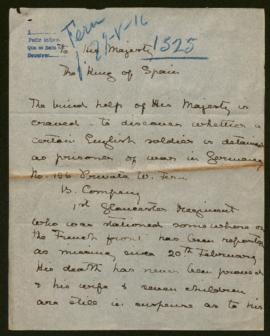 Fern
29-V-16
1525
To His Majesty
The King of Spain.
The kind help of His Majesty is
craved to discover whether a
certain English soldier is detained
as prisoner of war in Germany
No. 186 Private W. Fern
B. Company
1st Gloucester Regiment
who was stationed somewhere on
the French front has been reported
as missing since 20th February
His death has never been proved
& his wife & seven children
are still in suspense as to his